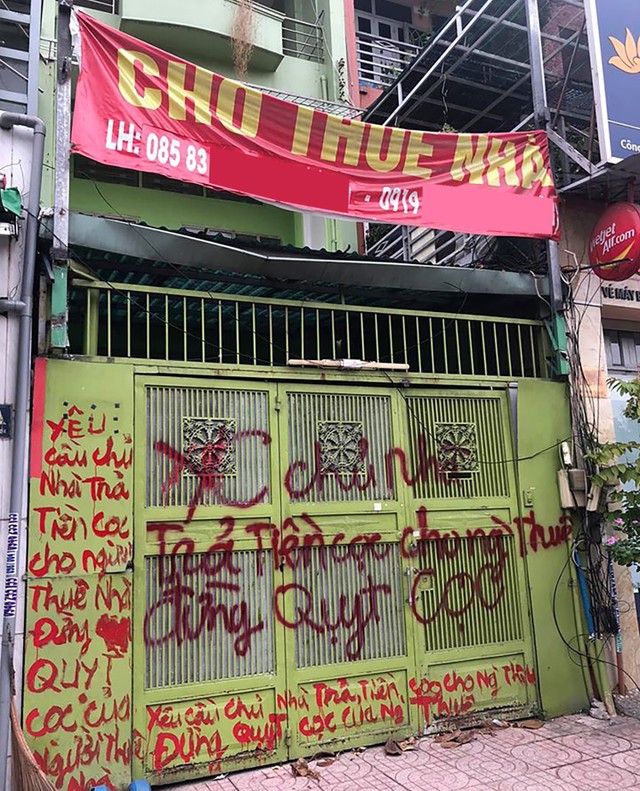 CHO THUÊ NHÀ
LH: 085 83
- 0919
Công
vietjet
Air.com
VÉ MÁY B
YÊU
cầu chủ
Nhà Trả
Tiền Cọc
cho người
THUÊ NHÀ
ĐừNG
QUỴT
CỌC CỦA
NGƯỜI THUÊ
NHÀ
YC chủ nhà
Trả Tiền cọc cho ng Thuê
đừng QUỴT CỌC
Yêu cầu chủ Nhà Trả Tiền cọc cho Ng Thuê
ĐừNG QUỴT CỌC CỦA NG THUÊ